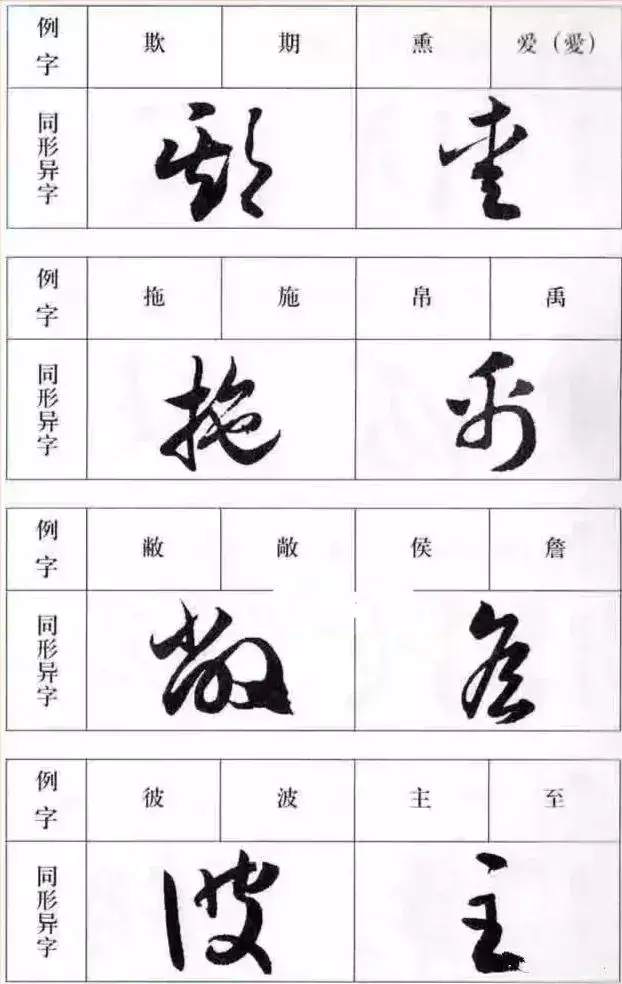 例字 欺 期 熏 爱（愛）
同形异字
例字 拖 施 帛 禹
同形异字
例字 敝 敞 侯 詹
同形异字
例字 彼 波 主 至
同形异字